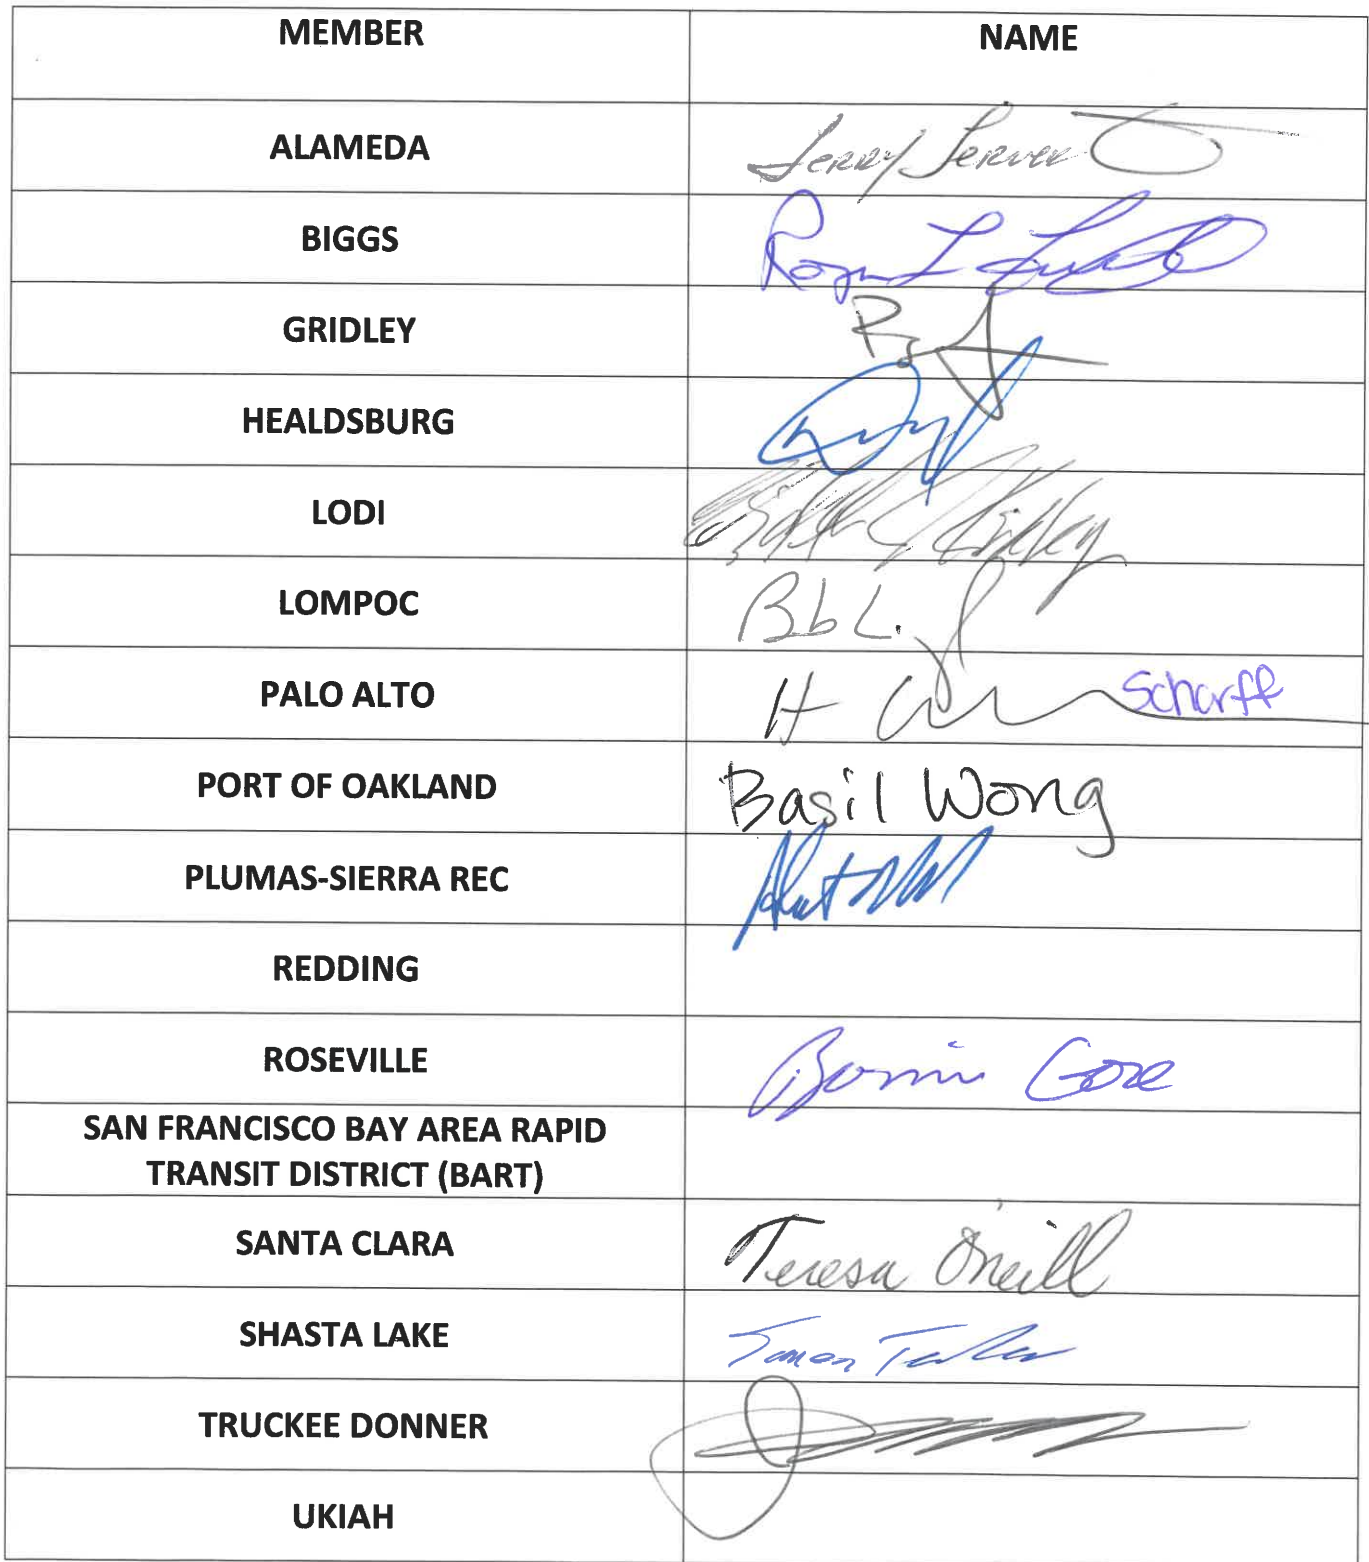 MEMBER NAME
ALAMEDA Jerry Server
BIGGS Roger L
GRIDLEY
HEALDSBURG
LODI
LOMPOC Bob L.
PALO ALTO H Scharff
PORT OF OAKLAND Basil Wong
PLUMAS-SIERRA REC
REDDING
ROSEVILLE Bonnie Gore
SAN FRANCISCO BAY AREA RAPID
TRANSIT DISTRICT (BART)
SANTA CLARA Teresa O'Neill
SHASTA LAKE
TRUCKEE DONNER
UKIAH